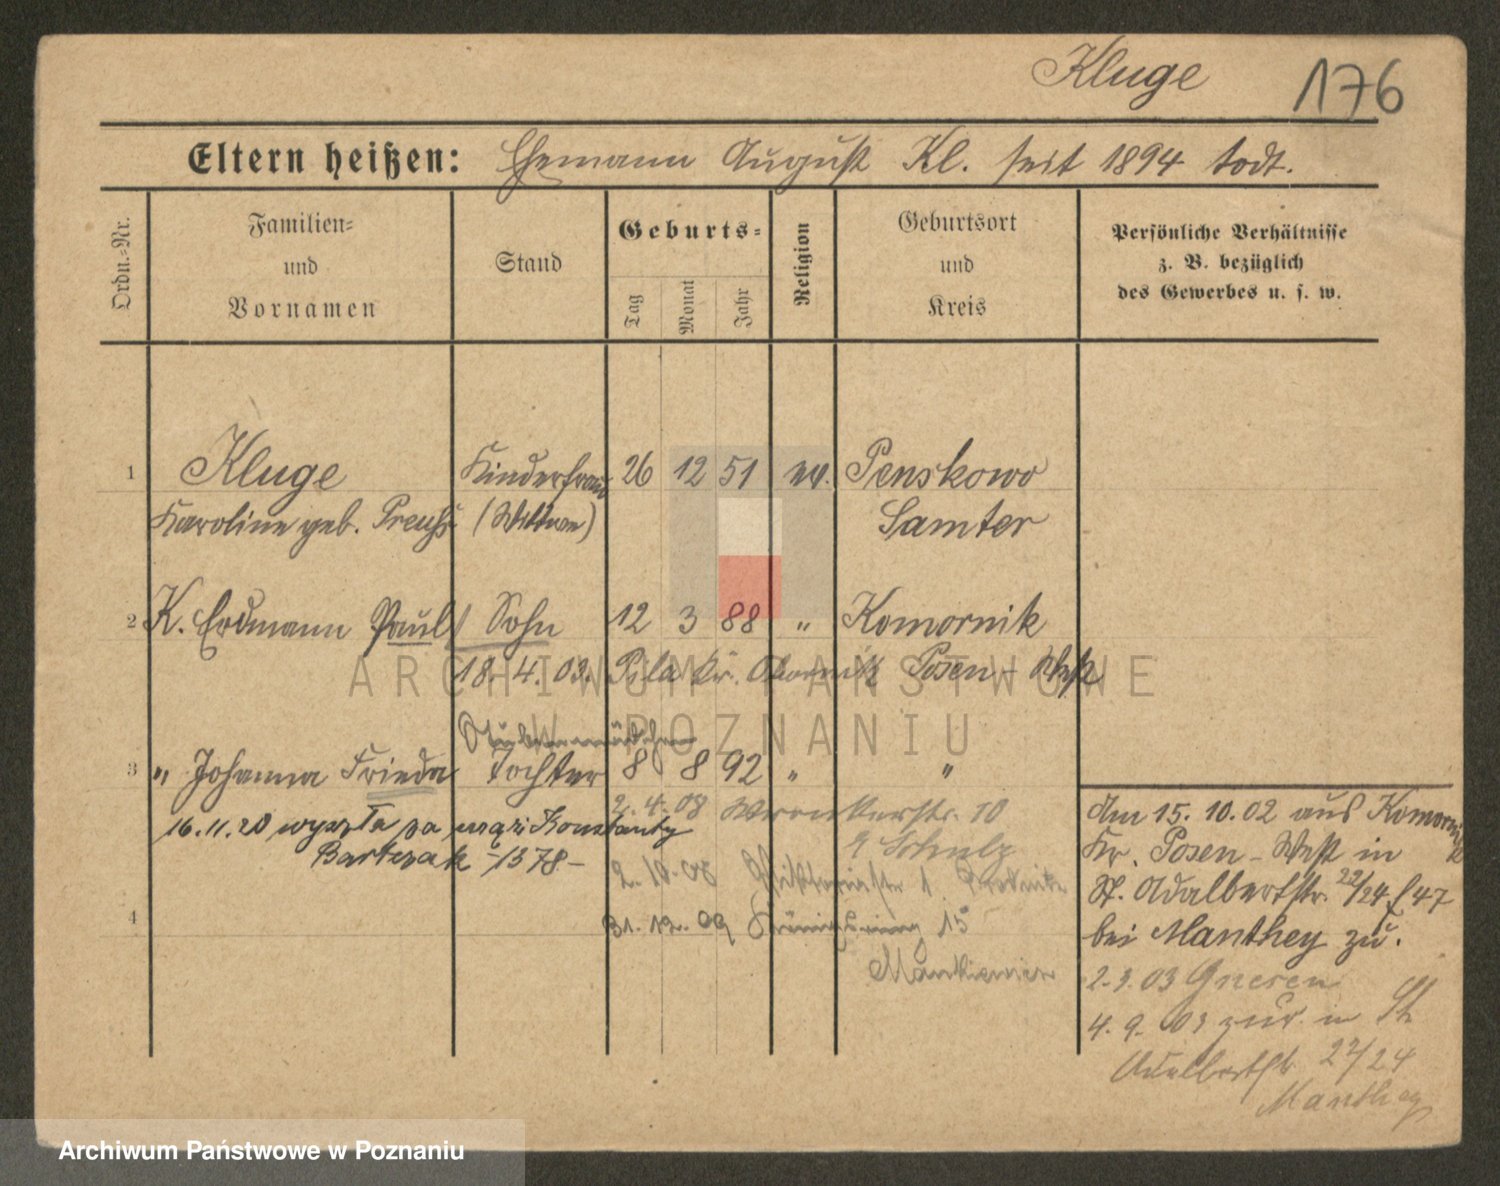 Kluge 176
Eltern heißen: Ehemann August Kl. seit 1894 todt.
Ordn.-Nr.
Familien-
und
Vornamen
Stand
Geburts-
Tag
Monat
Jahr
Religion
Geburtsort
und
Kreis
Persönliche Verhältnisse
z. B. bezüglich
des Gewerbes u. s. w.
1 Kluge Kinderfrau 26 12 51 ev. Penskowo
Karoline geb. Preuß (Wittwe) Samter
2 K. Erdmann Paul Sohn 12 3 88 " Komornik
18. 4. 03. Pila Kr. Obornik Posen-West
Stubenmädchen
3 " Johanna Frieda Tochter 8 8 92 " "
2. 4. 08 Wronkerstr. 10
16.11.20 wyszła za mąż: Konstanty
Schulz
Bartczak -1378-
2. 10. 08 Viktoriastr 1
4
31. 12. 09 Königsring 15
Mankiewicz
Am 15. 10. 02 aus Komornik
Kr. Posen-West in
St. Adalbertstr. 22/24 47
bei Manthey zu.
2. 3. 03 Gnesen
4. 9. 03 zur. in St
Adalbertstr. 22/24
Manthey
ARCHIWUM PAŃSTWOWE
W POZNANIU
Archiwum Państwowe w Poznaniu